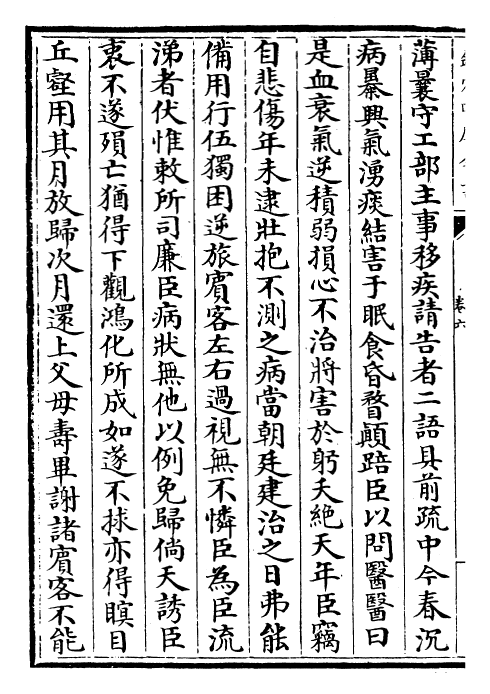 薄曩守工部主事移疾請告者二語具前疏中今春沉
病暴興氣湧痰結害于眠食昏瞀顛踣臣以問醫醫曰
是血衰氣逆積弱損心不治將害於躬夭絶天年臣竊
自悲傷年未逮壯抱不測之病當朝廷建治之日弗能
備用行伍獨困逆旅賓客左右過視無不憐臣為臣流
涕者伏惟敕所司廉臣病狀無他以例免歸倘天誘臣
衷不遂殞亡猶得下觀鴻化所成如遂不捄亦得瞑目
丘壑用其月放歸次月還上父母壽畢謝諸賓客不能
卷六